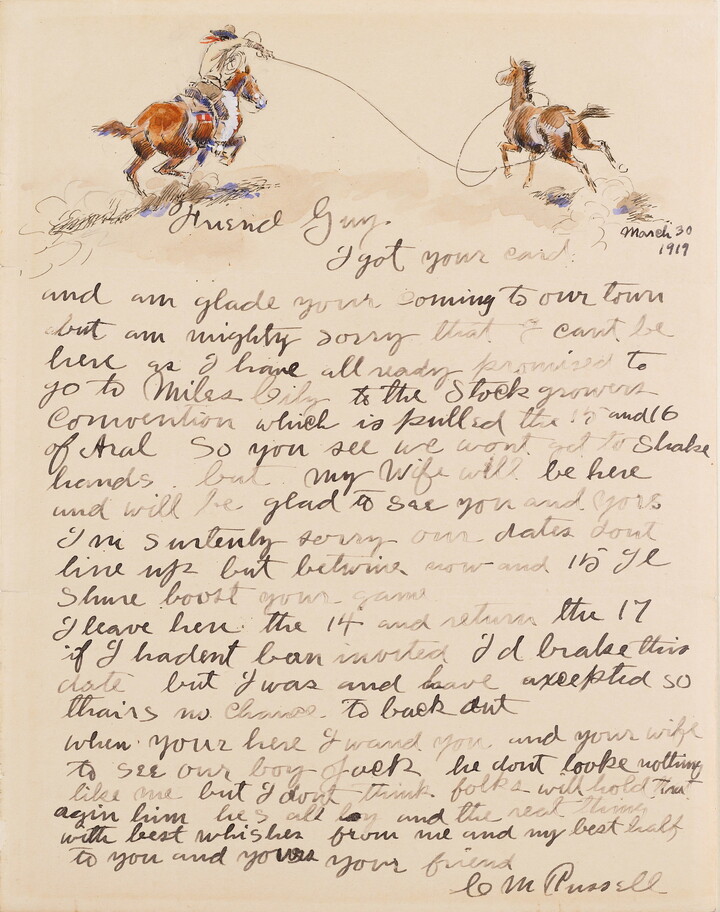 Friend Guy.
March 30
1919
I got your card
and am glade your coming to our town
but am mighty sorry that I cant be
here as I have all ready promised to
go to Miles City to the Stock growers
Convention which is pulled the 15 and 16
of Aral So you see we wont get to Shake
hands. but my Wife will be here
and will be glad to see you and yors
I'm surtenly sorry our dates dont
line up but betwine now and 15 Il
Shure boost your game
I leave here the 14 and return the 17
if I hadent ban invited I'd brake this
date but I was and have axcepted so
thairs no chance to back out
when your here I wand you and your wife
to see our boy Jack he dont looke nothing
like me but I dont think folks will hold that
agin him hes all boy and the real thing
with best whishes from me and my best half
to you and yours your friend
C M Russell